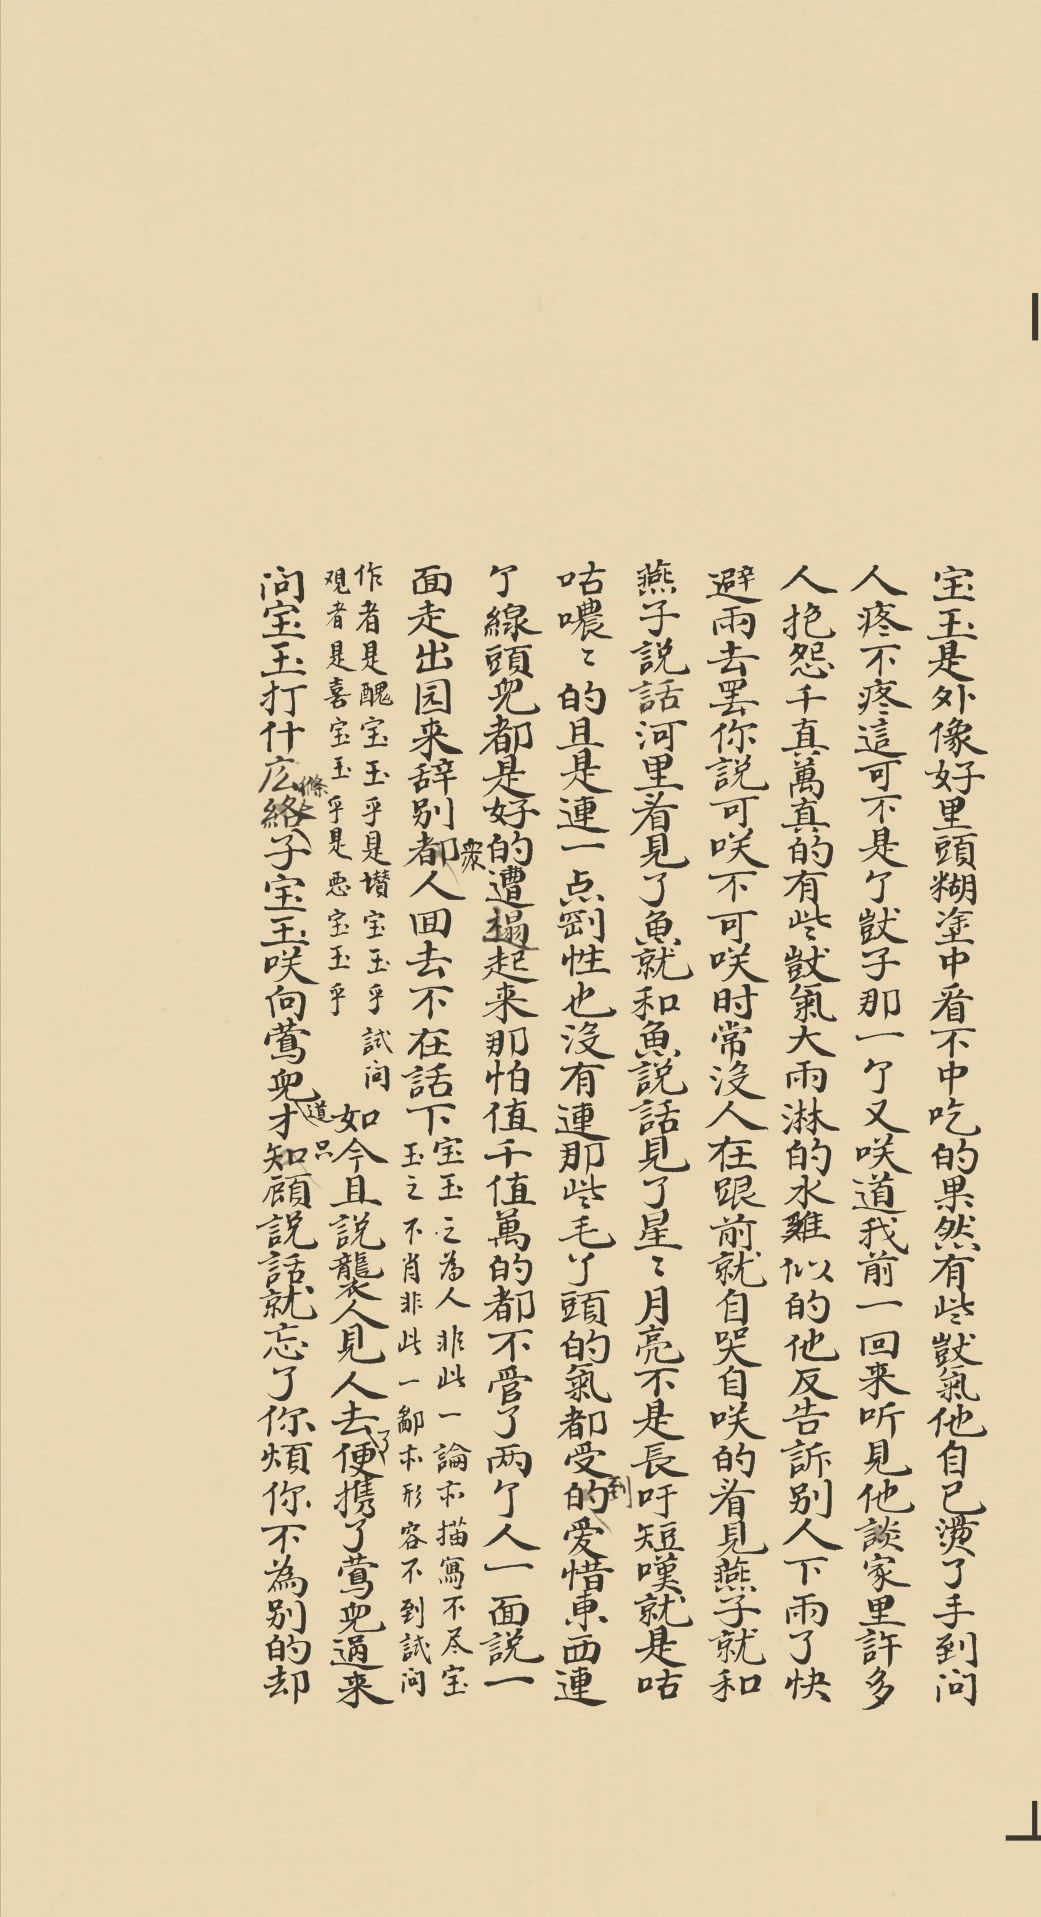 宝玉是外像好里頭糊塗中看不中吃的果然有些獃氣他自己燙了手到问
人疼不疼這可不是个獃子那一个又咲道我前一回来听見他談家里許多
人抱怨千真萬真的有些獃氣大雨淋的水雞似的他反告訴别人下雨了快
避雨去罢你説可咲不可咲时常没人在跟前就自哭自咲的看見燕子就和
燕子説話河里看見了魚就和魚説話見了星〻月亮不是長吁短嘆就是咕
咕噥〻的且是連一点剛性也没有連那些毛丫頭的氣都受的到愛惜東西連
个線頭兒都是好的遭榻起来那怕值千值萬的都不管了两个人一面説一
面走出园来辞别都衆人回去不在話下
宝玉之為人非此一論亦描寫不尽宝
玉之不肖非此一鄙亦形容不到試问
作者是醜宝玉乎是讃宝玉乎試问
观者是喜宝玉乎是恶宝玉乎
如今且説襲人見人去了便携了鶯兒過来
问宝玉打什庅絡縧子宝玉咲向鶯兒道才只知顧説話就忘了你煩你不為别的却